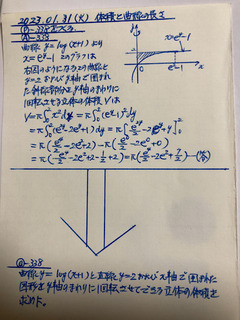 2023.01.31(火) 体積と曲線の長さ
A-338
曲線 y=log(x+1) より
x=e^y-1 のグラフは
右図のようになるより曲線と
y=2 および y軸で囲まれ
た斜線部分を y軸のまわりに
1回転させる立体の体積Vは
V=π∫₀²x²dy=π∫₀²(e^y-1)²dy
=π∫₀²(e^2y-2e^y+1)dy=π[e^2y/2-2e^y+y]₀²
=π(e⁴/2-2e²+2)-π(e⁰/2-2e⁰+0)
=π(e⁴/2-2e²+2-1/2+2)=π(e⁴/2-2e²+7/2)…(答)
y
2
x=e^y-1
O
e²-1
x
Q-338
曲線 y=log(x+1) と直線 y=2 および y軸で囲まれた
図形を y軸のまわりに1回転させてできる立体の体積を
求めよ。